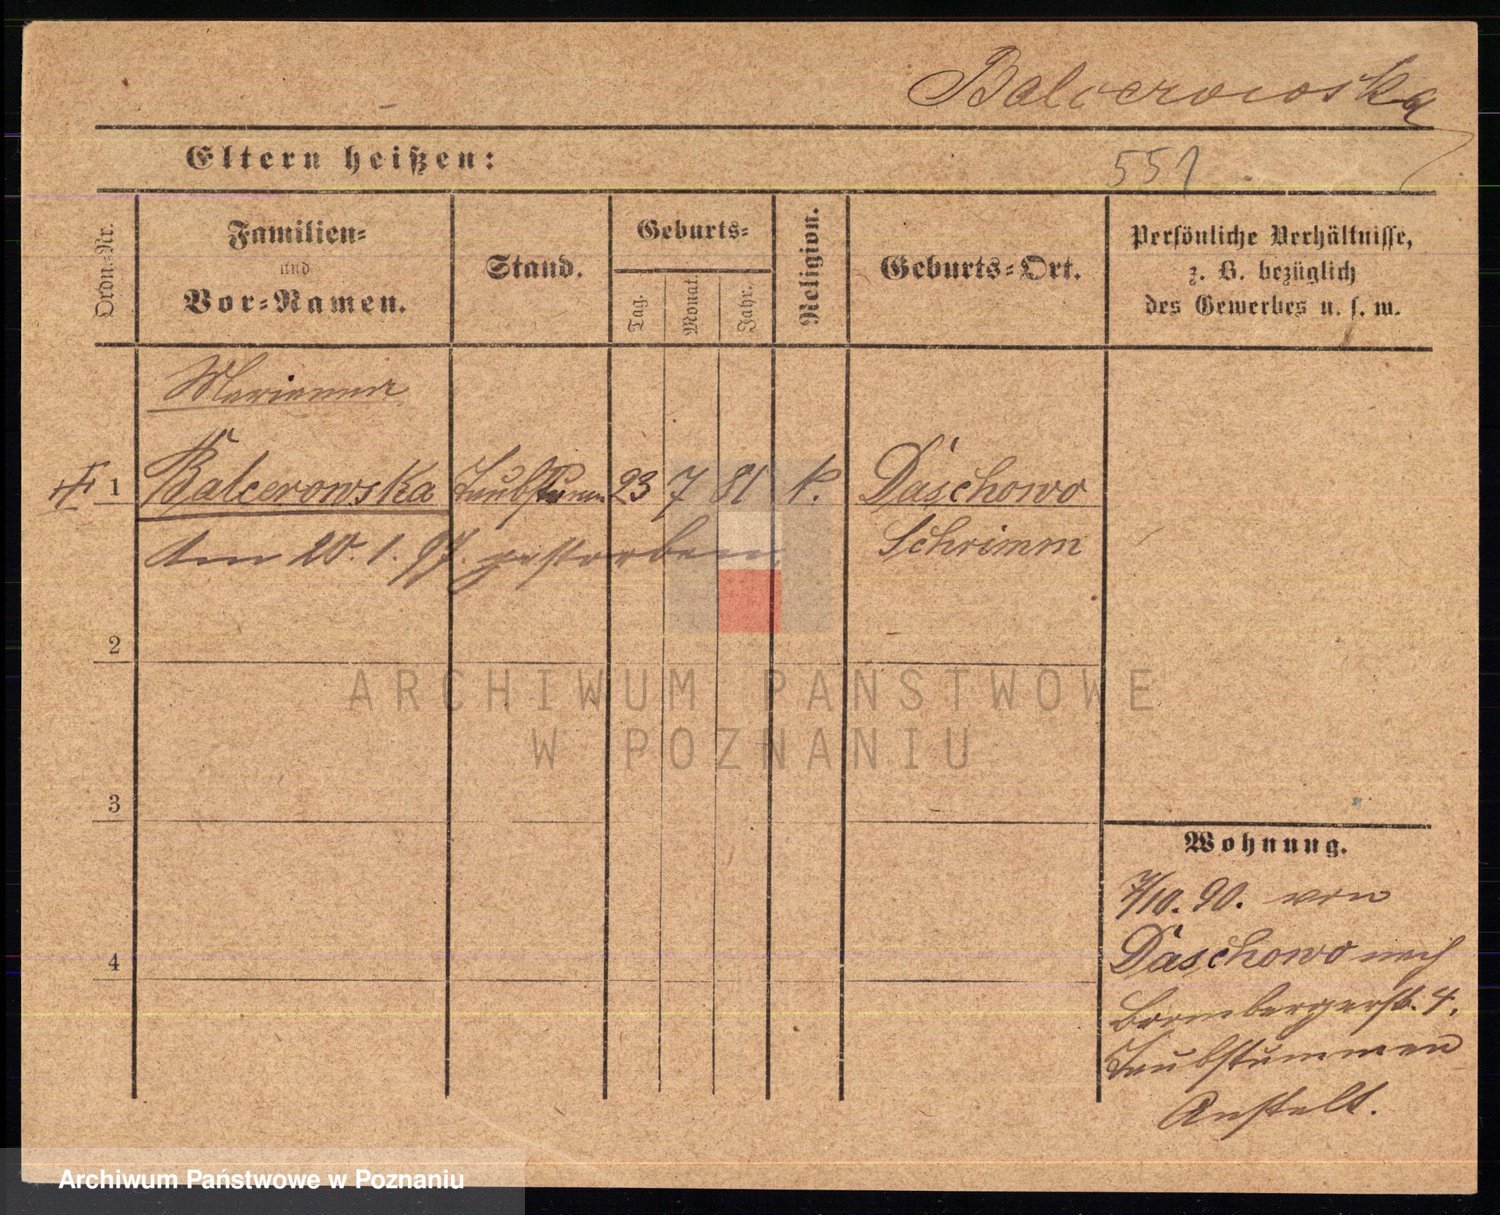 Balcerowska
Eltern heißen:
551
Ordn.-Nr.
Familien-
und
Vor-Namen.
Stand.
Geburts-
Tag.
Monat.
Jahr.
Religion.
Geburts-Ort.
Persönliche Verhältnisse,
z. B. bezüglich
des Gewerbes u. s. w.
Marianna
1 Balcerowska Taubstumm 23 7 81 k. Daschowo
Am 20.1.97. gestorben. Schrimm
2
ARCHIWUM PAŃSTWOWE
W POZNANIU
3
Wohnung.
7/10. 90. von
4
Daschowo nach
Brombergerstr. 4.
Taubstummen
Anstalt.
Archiwum Państwowe w Poznaniu